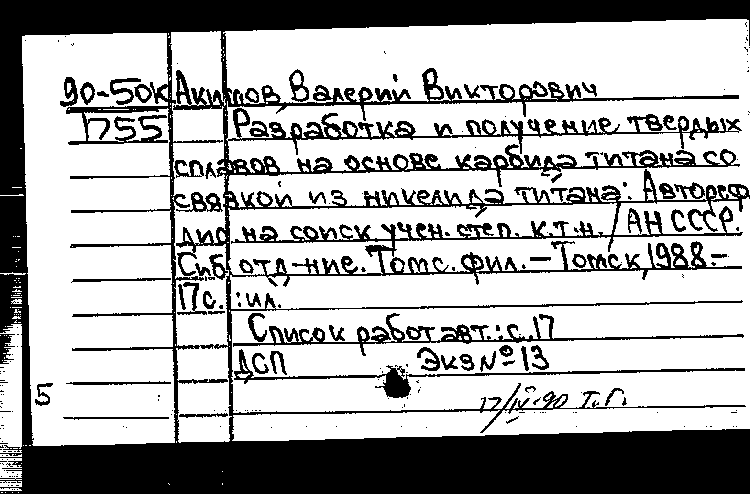 90-50К Акимов, Валерий Викторович
1755 Разработка и получение твердых
сплавов на основе карбида титана со
связкой из никелида титана: Автореф.
дис. на соиск. учен. степ. к.т.н. / АН СССР.
Сиб. отд-ние. Томс. фил. – Томск, 1988. –
17 с. : ил.
Список работ авт.: с. 17
ДСП Экз № 13
5
17/IV-90 Т.Г.